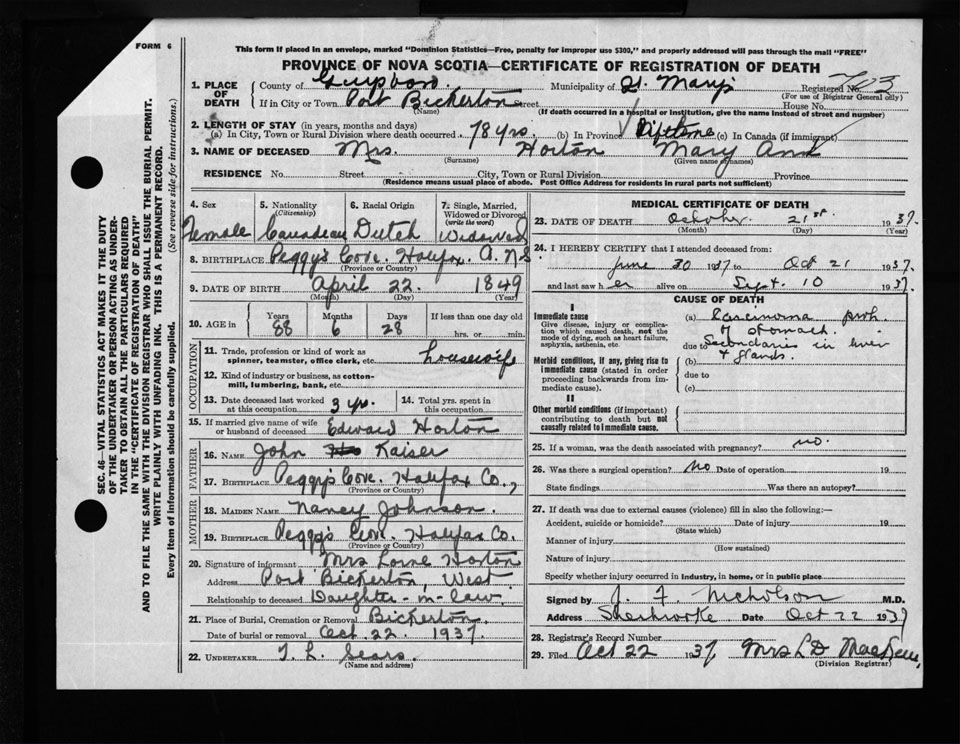 FORM 6
This form if placed in an envelope, marked "Dominion Statistics—Free, penalty for improper use $300," and properly addressed will pass through the mail "FREE"
PROVINCE OF NOVA SCOTIA—CERTIFICATE OF REGISTRATION OF DEATH
SEC. 46—VITAL STATISTICS ACT MAKES IT THE DUTY
OF THE UNDERTAKER OR PERSON ACTING AS UNDER-
TAKER TO OBTAIN ALL THE PARTICULARS REQUIRED
IN THE "CERTIFICATE OF REGISTRATION OF DEATH"
AND TO FILE THE SAME WITH THE DIVISION REGISTRAR WHO SHALL ISSUE THE BURIAL PERMIT.
WRITE PLAINLY WITH UNFADING INK. THIS IS A PERMANENT RECORD.
Every item of information should be carefully supplied. (See reverse side for instructions.)
1. PLACE OF DEATH
County of Guysboro Municipality of St. Mary's Registered No. 703
(For use of Registrar General only)
If in City or Town Port Bickerton Street House No.
(Name) (If death occurred in a hospital or institution, give the name instead of street and number)
2. LENGTH OF STAY (in years, months and days)
(a) In City, Town or Rural Division where death occurred 78 yrs. (b) In Province Lifetime (c) In Canada (if immigrant)
3. NAME OF DECEASED Mrs. Horton Mary Ann
(Surname) (Given name or names)
RESIDENCE No. Street City, Town or Rural Division Province
(Residence means usual place of abode. Post Office Address for residents in rural parts not sufficient)
4. Sex Female
5. Nationality (Citizenship) Canadian
6. Racial Origin Dutch
7. Single, Married, Widowed or Divorced (write the word) Widowed
8. BIRTHPLACE Peggy's Cove. Halifax. N.S
(Province or Country)
9. DATE OF BIRTH April 22. 1849
(Month) (Day) (Year)
10. AGE in Years 88 Months 6 Days 28 If less than one day old hrs. or min.
OCCUPATION
11. Trade, profession or kind of work as spinner, teamster, office clerk, etc. housewife
12. Kind of industry or business, as cotton-mill, lumbering, bank, etc.
13. Date deceased last worked at this occupation 3 yrs.
14. Total yrs. spent in this occupation
15. If married give name of wife or husband of deceased Edward Horton
FATHER
16. NAME John Kaiser
17. BIRTHPLACE Peggy's Cove. Halifax Co.,
(Province or Country)
MOTHER
18. MAIDEN NAME Nancy Johnson.
19. BIRTHPLACE Peggy's Cove. Halifax Co.
(Province or Country)
20. Signature of informant Mrs Lorne Horton
Address Port Bickerton, West
Relationship to deceased Daughter-in-law.
21. Place of Burial, Cremation or Removal Bickerton.
Date of burial or removal Oct. 22. 1937.
22. UNDERTAKER T. L. Sears.
(Name and address)
MEDICAL CERTIFICATE OF DEATH
23. DATE OF DEATH October 21st 1937.
(Month) (Day) (Year)
24. I HEREBY CERTIFY that I attended deceased from:
June 30 1937 to Oct 21 1937.
and last saw her alive on Sept. 10 1937.
CAUSE OF DEATH
I
Immediate cause
Give disease, injury or complication which caused death, not the mode of dying, such as heart failure, asphyxia, asthenia, etc.
(a) Carcinoma prob.
of stomach.
due to Secondaries in liver
& glands.
Morbid conditions, if any, giving rise to immediate cause (stated in order proceeding backwards from immediate cause).
(b)
due to
(c)
II
Other morbid conditions (if important) contributing to death but not causally related to immediate cause.
25. If a woman, was the death associated with pregnancy? no.
26. Was there a surgical operation? No Date of operation 19
State findings Was there an autopsy?
27. If death was due to external causes (violence) fill in also the following:—
Accident, suicide or homicide? Date of injury 19
(State which)
Manner of injury
(How sustained)
Nature of injury
Specify whether injury occurred in industry, in home, or in public place
Signed by J. F. Nicholson M.D.
Address Sherbrooke Date Oct 22 1937
28. Registrar's Record Number
29. Filed Oct 22 1937 Mrs L D
(Division Registrar)